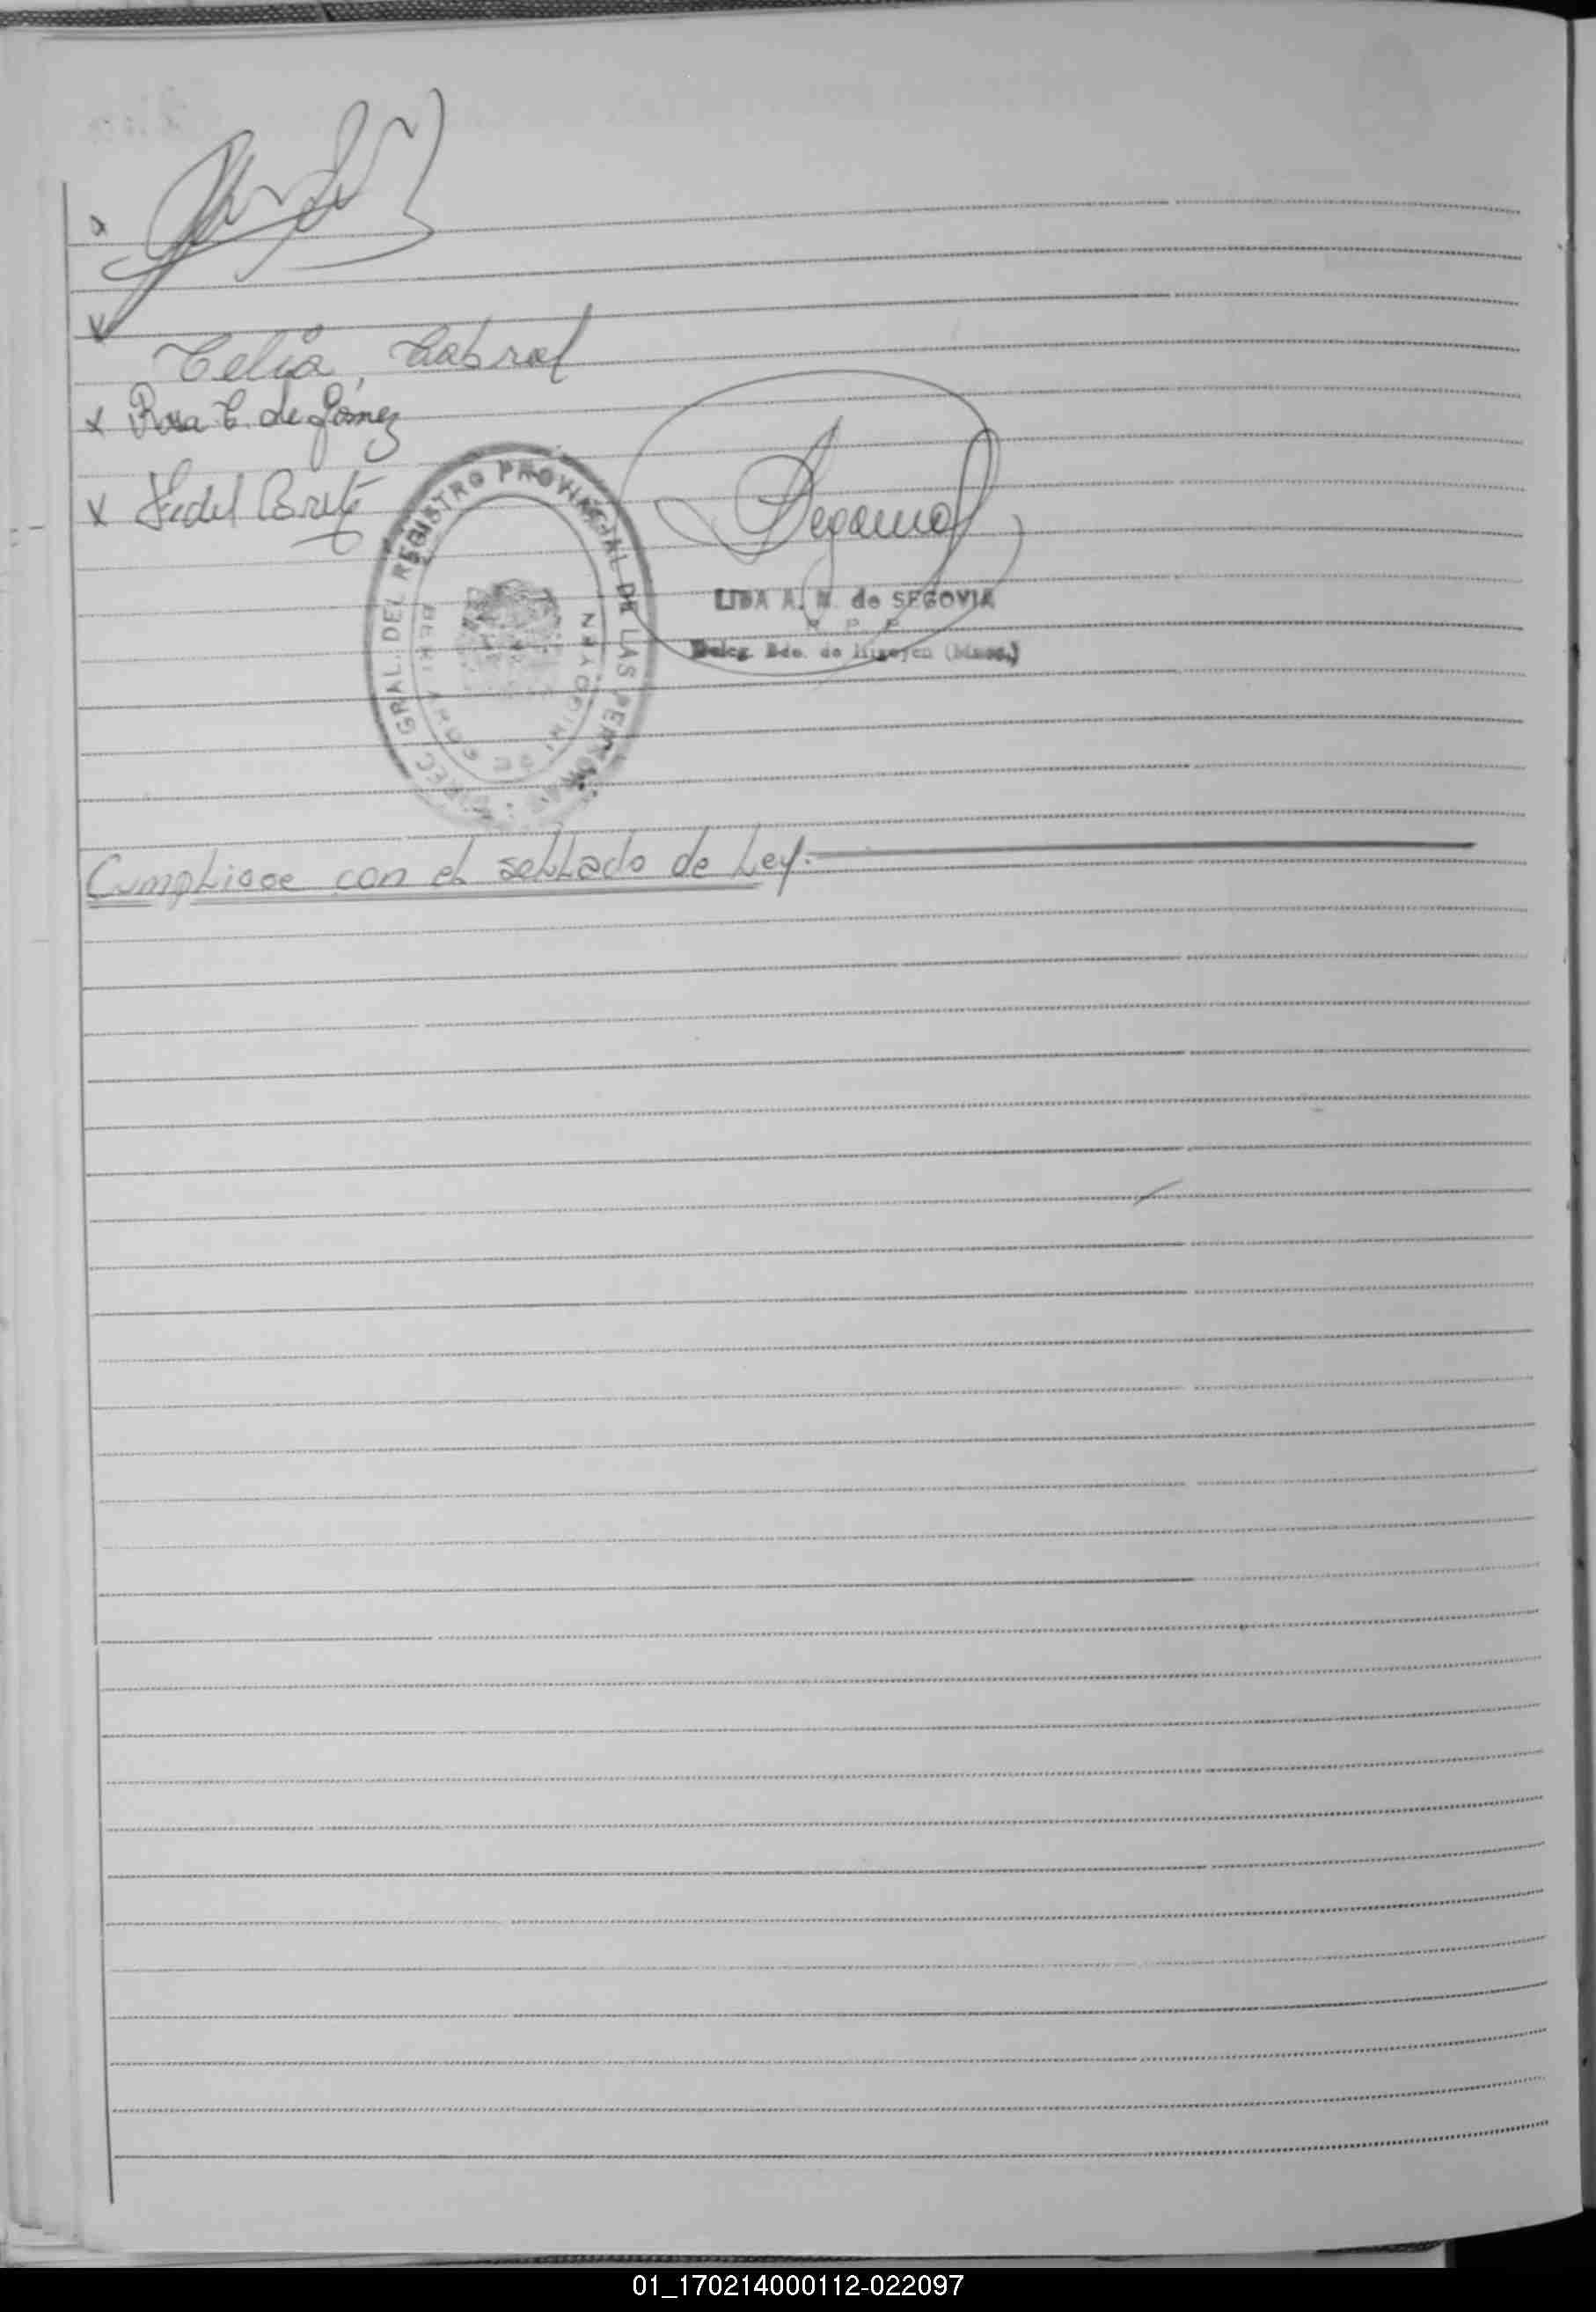 x
x
Celia, Cabral
x Rosa C. de Gómez
x Fidel Brítez
DIREC. GRAL. DEL REGISTRO PROVINCIAL DE LAS PERSONAS
BERNARDO DE IRIGOYEN
LIDA A. N. de SEGOVIA
R. P. P.
Deleg. Bdo. de Irigoyen (Mnes.)
Cumpliose con el sellado de Ley.
01_170214000112-022097